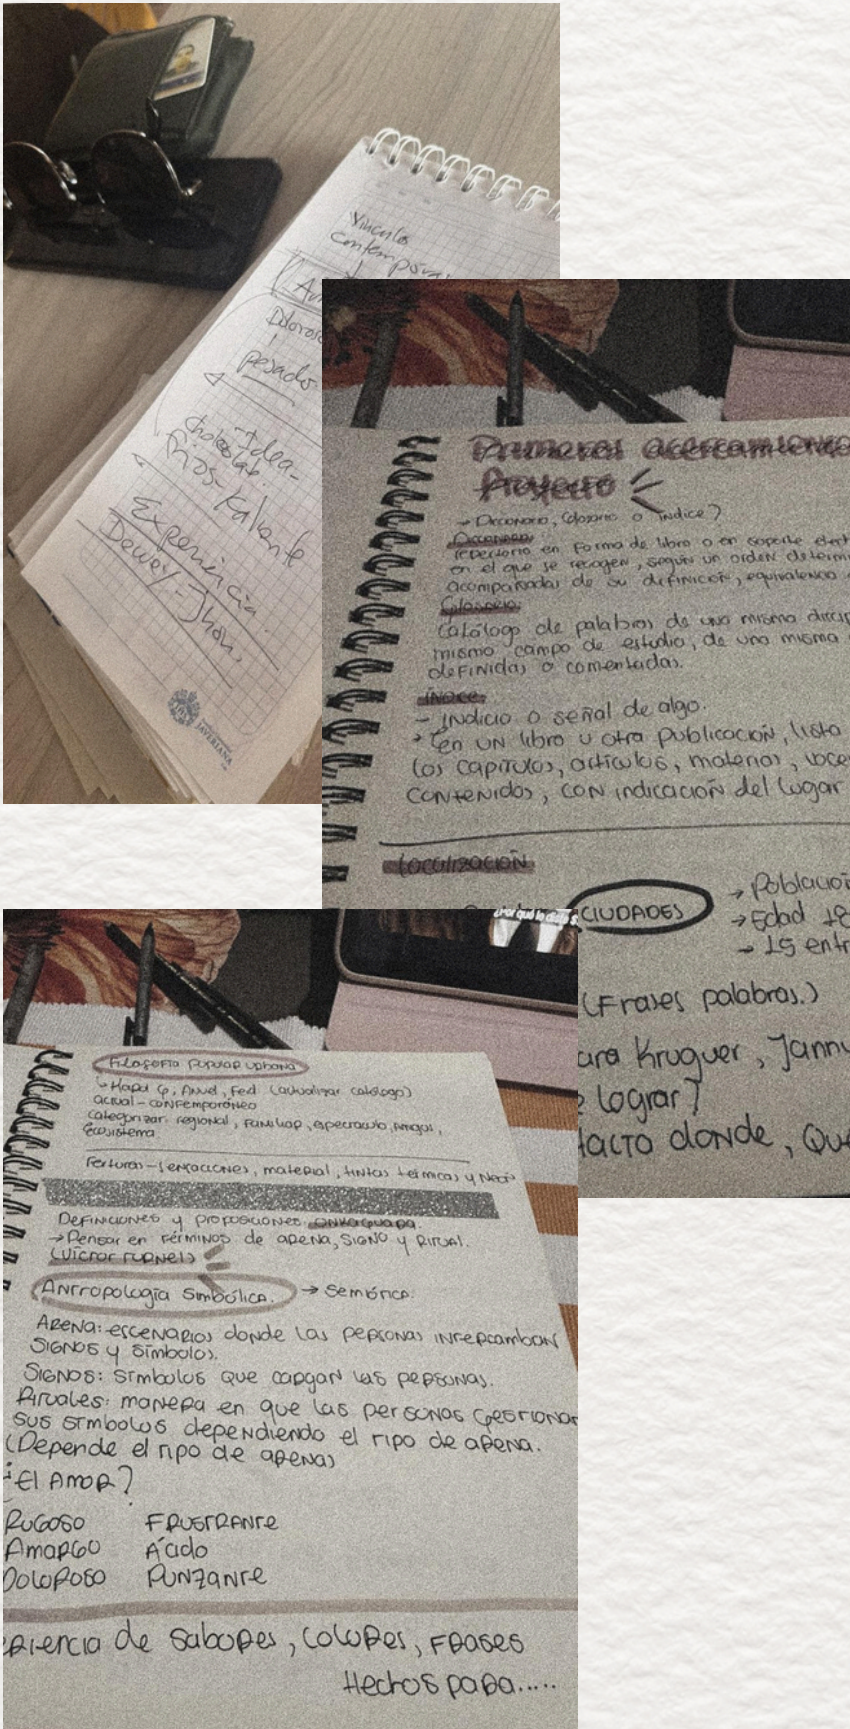 Vínculos
contemporá
Am
Doloros
pesado
Idea-
chocolat.
Fríos-Kaliente
Experiencia.
Dewey-Jhon.
JAVERIANA
Primeros acercamiento
Proyecto
→ Diccionario, Glosario o índice?
Diccionario
repertorio en forma de libro o en soporte elect
en el que se recogen, según un orden determi
acompañadas de su definición, equivalencia
Glosario:
Catálogo de palabras de una misma discip
mismo campo de estudio, de una misma
definidas o comentadas.
Indice:
- indicio o señal de algo.
→ En un libro u otra publicación, lista
los capítulos, artículos, materias, voce
contenidos, con indicación del lugar
Localización
CIUDADES
→ Población
→ Edad 18
→ 15 entr
(Frases palabras.)
ara Kruguer, Jenny
lograr?
acto donde, Que
¿Por qué lo dejó s
Filosofía Popular urbana
↳ Mapa G, Anuel, Feid (actualizar catálogo)
actual-contemporáneo
categorizar: regional, familiar, espectáculo, Amigos,
Ecosistema
Texturas-sensaciones, material, tintas térmicas y Neón
Definiciones y proposiciones
→ Pensar en términos de arena, signo y ritual.
(Víctor Turnel)
Antropología simbólica. → Semiótica.
Arena: escenarios donde las personas intercambian
signos y símbolos.
Signos: símbolos que cargan las personas.
Rituales: manera en que las personas gestionan
sus símbolos dependiendo el tipo de arena.
(Depende el tipo de arena)
¿El Amor?
Rugoso Frustrante
Amargo Ácido
Doloroso Punzante
eriencia de sabores, colores, frases
Hechos para.....